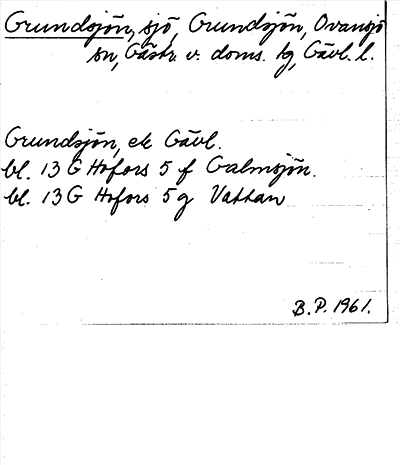 Grundsjön, sjö, Grundsjön, Ovansjö
sn, Gästr. v. doms. tg, Gävl. l.
Grundsjön, ek Gävl.
bl. 13 G Hofors 5 f Galmsjön.
bl. 13 G Hofors 5 g Vattan
B.P. 1961.